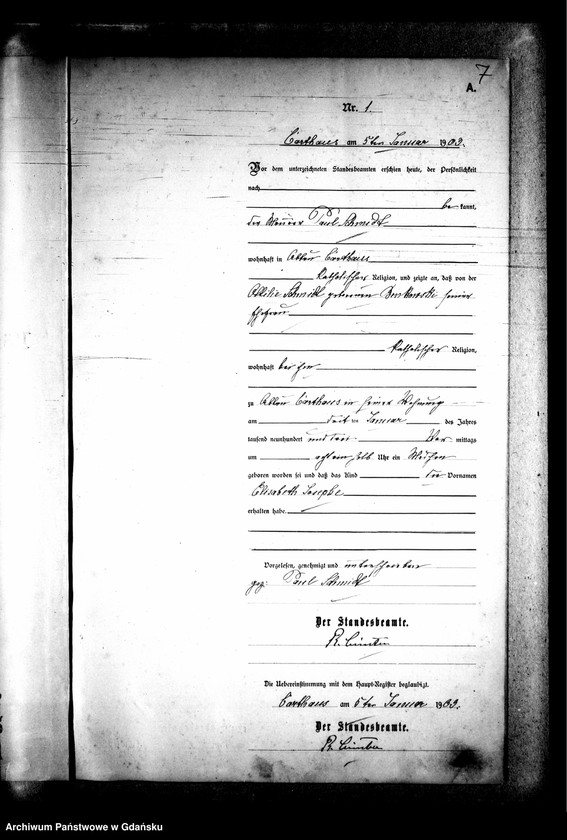 7
A.
Nr. 1.
Carthaus am 5ten Januar 1903.
Vor dem unterzeichneten Standesbeamten erschien heute, der Persönlichkeit
nach
be kannt,
der Maurer Paul Schmidt
wohnhaft in Abbau Carthaus
katholischer Religion, und zeigte an, daß von der
Ottilie Schmidt geborenen seiner
Ehefrau
katholischer Religion,
wohnhaft bei ihm
zu Abbau Carthaus in seiner Wohnung
am Januar des Jahres
tausend neunhundert und drei Vor mittags
um Uhr ein Mädchen
geboren worden sei und daß das Kind die Vornamen
Elisabeth
erhalten habe.
Vorgelesen, genehmigt und unterschrieben
gez: Paul Schmidt
Der Standesbeamte.
Die Uebereinstimmung mit dem Haupt-Register beglaubigt.
Carthaus am 5ten Januar 1903.
Der Standesbeamte.
Archiwum Państwowe w Gdańsku